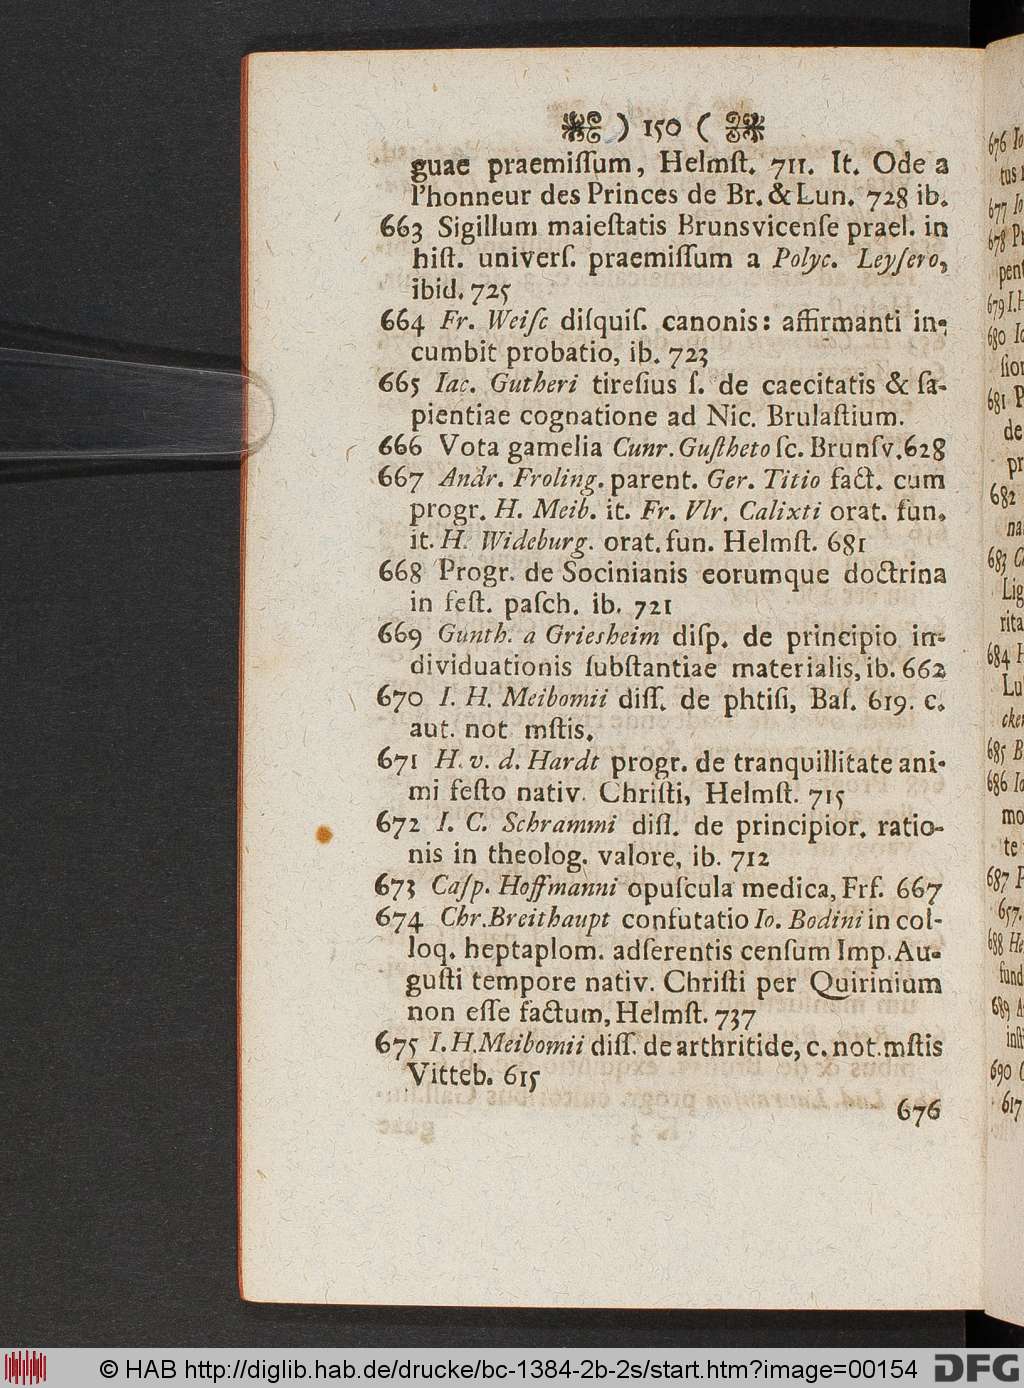 ) 150 (
guae praemiſſum, Helmſt. 711. It. Ode a
l'honneur des Princes de Br. & Lun. 728 ib.
663 Sigillum maieſtatis Brunsvicenſe prael. in
hiſt. univerſ. praemiſſum a Polyc. Leyſero,
ibid. 725
664 Fr. Weiſe diſquiſ. canonis: affirmanti in-
cumbit probatio, ib. 723
665 Iac. Gutheri tireſius ſ. de caecitatis & ſa-
pientiae cognatione ad Nic. Brulaſtium.
666 Vota gamelia Cunr. Guſtheto ſc. Brunſv. 628
667 Andr. Froling. parent. Ger. Titio fact. cum
progr. H. Meib. it. Fr. Vlr. Calixti orat. fun.
it. H. Wideburg. orat. fun. Helmſt. 681
668 Progr. de Socinianis eorumque doctrina
in feſt. paſch. ib. 721
669 Gunth. a Griesheim diſp. de principio in-
dividuationis ſubſtantiae materialis, ib. 662
670 I. H. Meibomii diſſ. de phtiſi, Baſ. 619. c.
aut. not mſtis.
671 H. v. d. Hardt progr. de tranquillitate ani-
mi feſto nativ. Chriſti, Helmſt. 715
672 I. C. Schrammi diſſ. de principior. ratio-
nis in theolog. valore, ib. 712
673 Caſp. Hoffmanni opuſcula medica, Frf. 667
674 Chr. Breithaupt confutatio Io. Bodini in col-
loq. heptaplom. adſerentis cenſum Imp. Au-
guſti tempore nativ. Chriſti per Quirinium
non eſſe factum, Helmſt. 737
675 I. H. Meibomii diſſ. de arthritide, c. not. mſtis
Vitteb. 615
676
676 Io
tus
677 Io
678
pen
679 I. H
680 Io
ſion
681 P
de
pr
682
na
683 C
Lig
rita
684 H
Lu
cker
685 B
686 Io
mo
te
687 P
657.
688 He
fund
689 A
inſt
690
617
© HAB http://diglib.hab.de/drucke/bc-1384-2b-2s/start.htm?image=00154
DFG